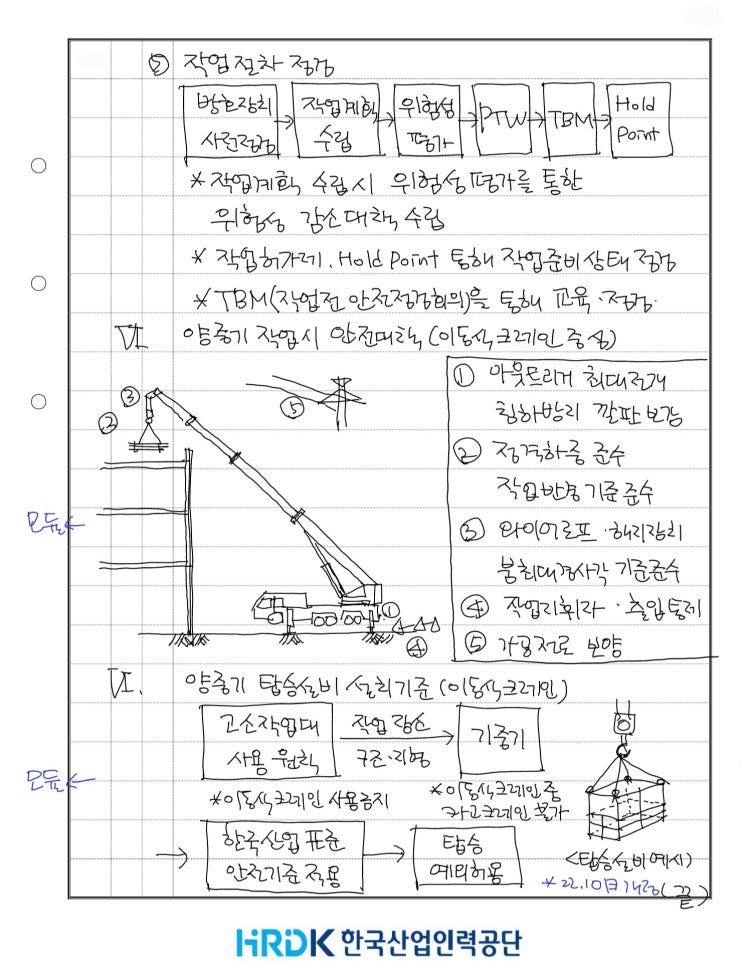 ⑤ 작업절차 점검
방호장치 사전점검 → 작업계획 수립 → 위험성 평가 → PTW → TBM → Hold Point
* 작업계획 수립시 위험성 평가를 통한
위험성 감소대책 수립
* 작업허가제, Hold Point 통해 작업준비상태 점검
* TBM(작업전 안전점검회의)을 통해 교육·점검.
VI. 양중기 작업시 안전대책 (이동식크레인 중심)
③
②
⑤
모듈←
①
④
① 아웃트리거 최대전개
침하방지 깔판 보강
② 정격하중 준수
작업반경 기준 준수
③ 와이어로프·해지장치
붐최대경사각 기준준수
④ 작업지휘자·출입통제
⑤ 가공전로 보양
VI. 양중기 탑승설비 설치기준 (이동식크레인)
고소작업대
사용 원칙
작업 장소
구조·지형
기중기
모듈←
*이동식크레인 사용금지
*이동식크레인 중
카고크레인 불가
→ 한국산업 표준
안전기준 적용
→ 탑승
예외허용
<탑승설비 예시>
* 22.10月 개정
(끝)
HRDK 한국산업인력공단